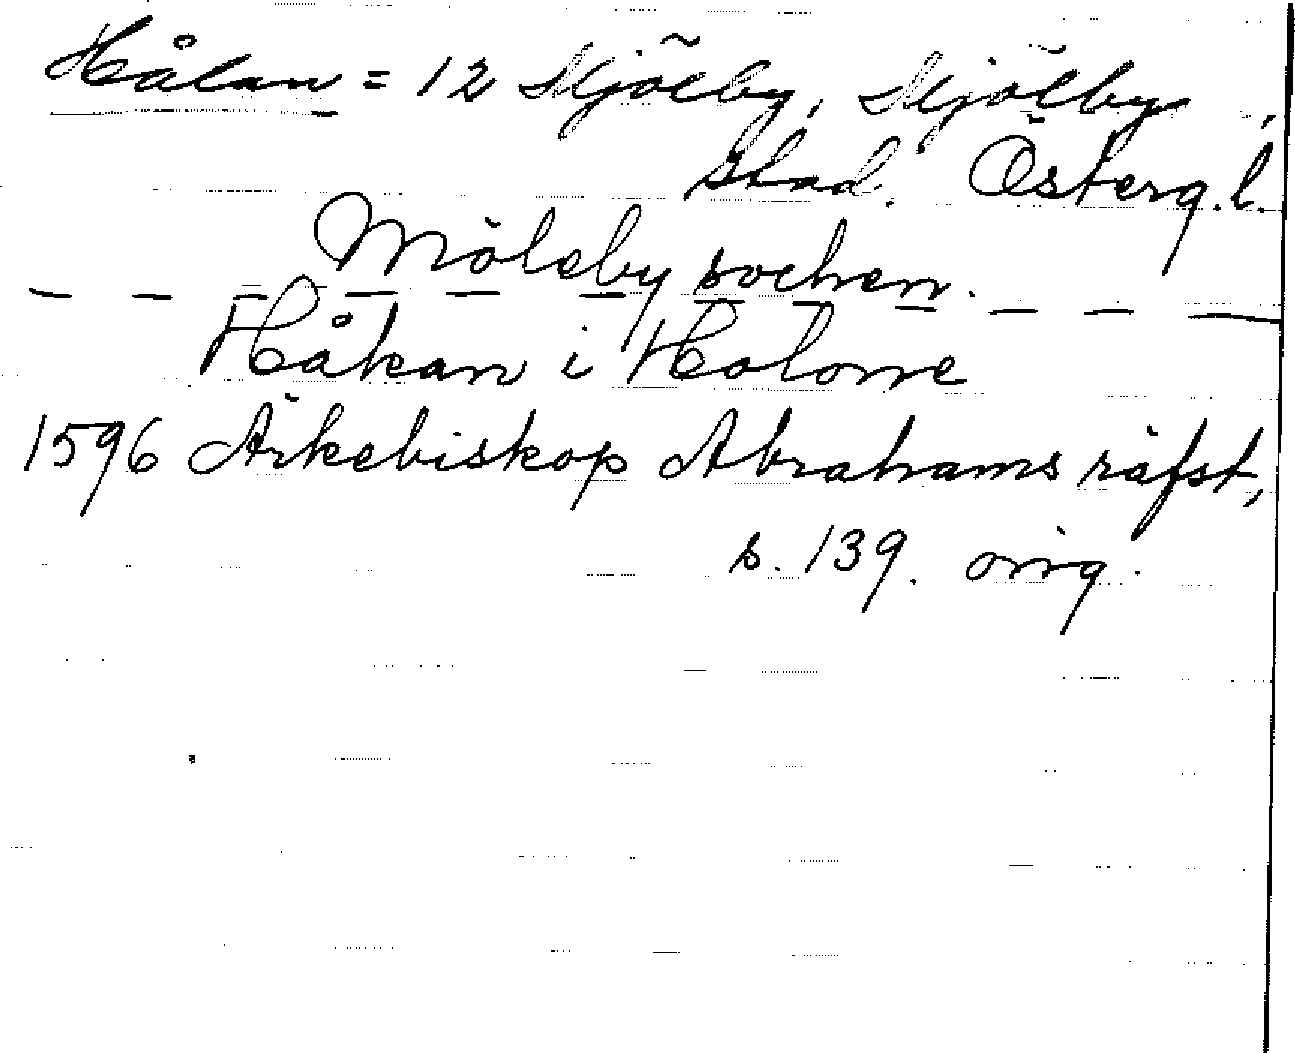 Hålan = 12 Mjölby, Mjölby,
stad. Österg. l.
Möleby sochen.
Håkan i Holone
1596 Ärkebiskop Abrahams räfst,
s. 139. orig.